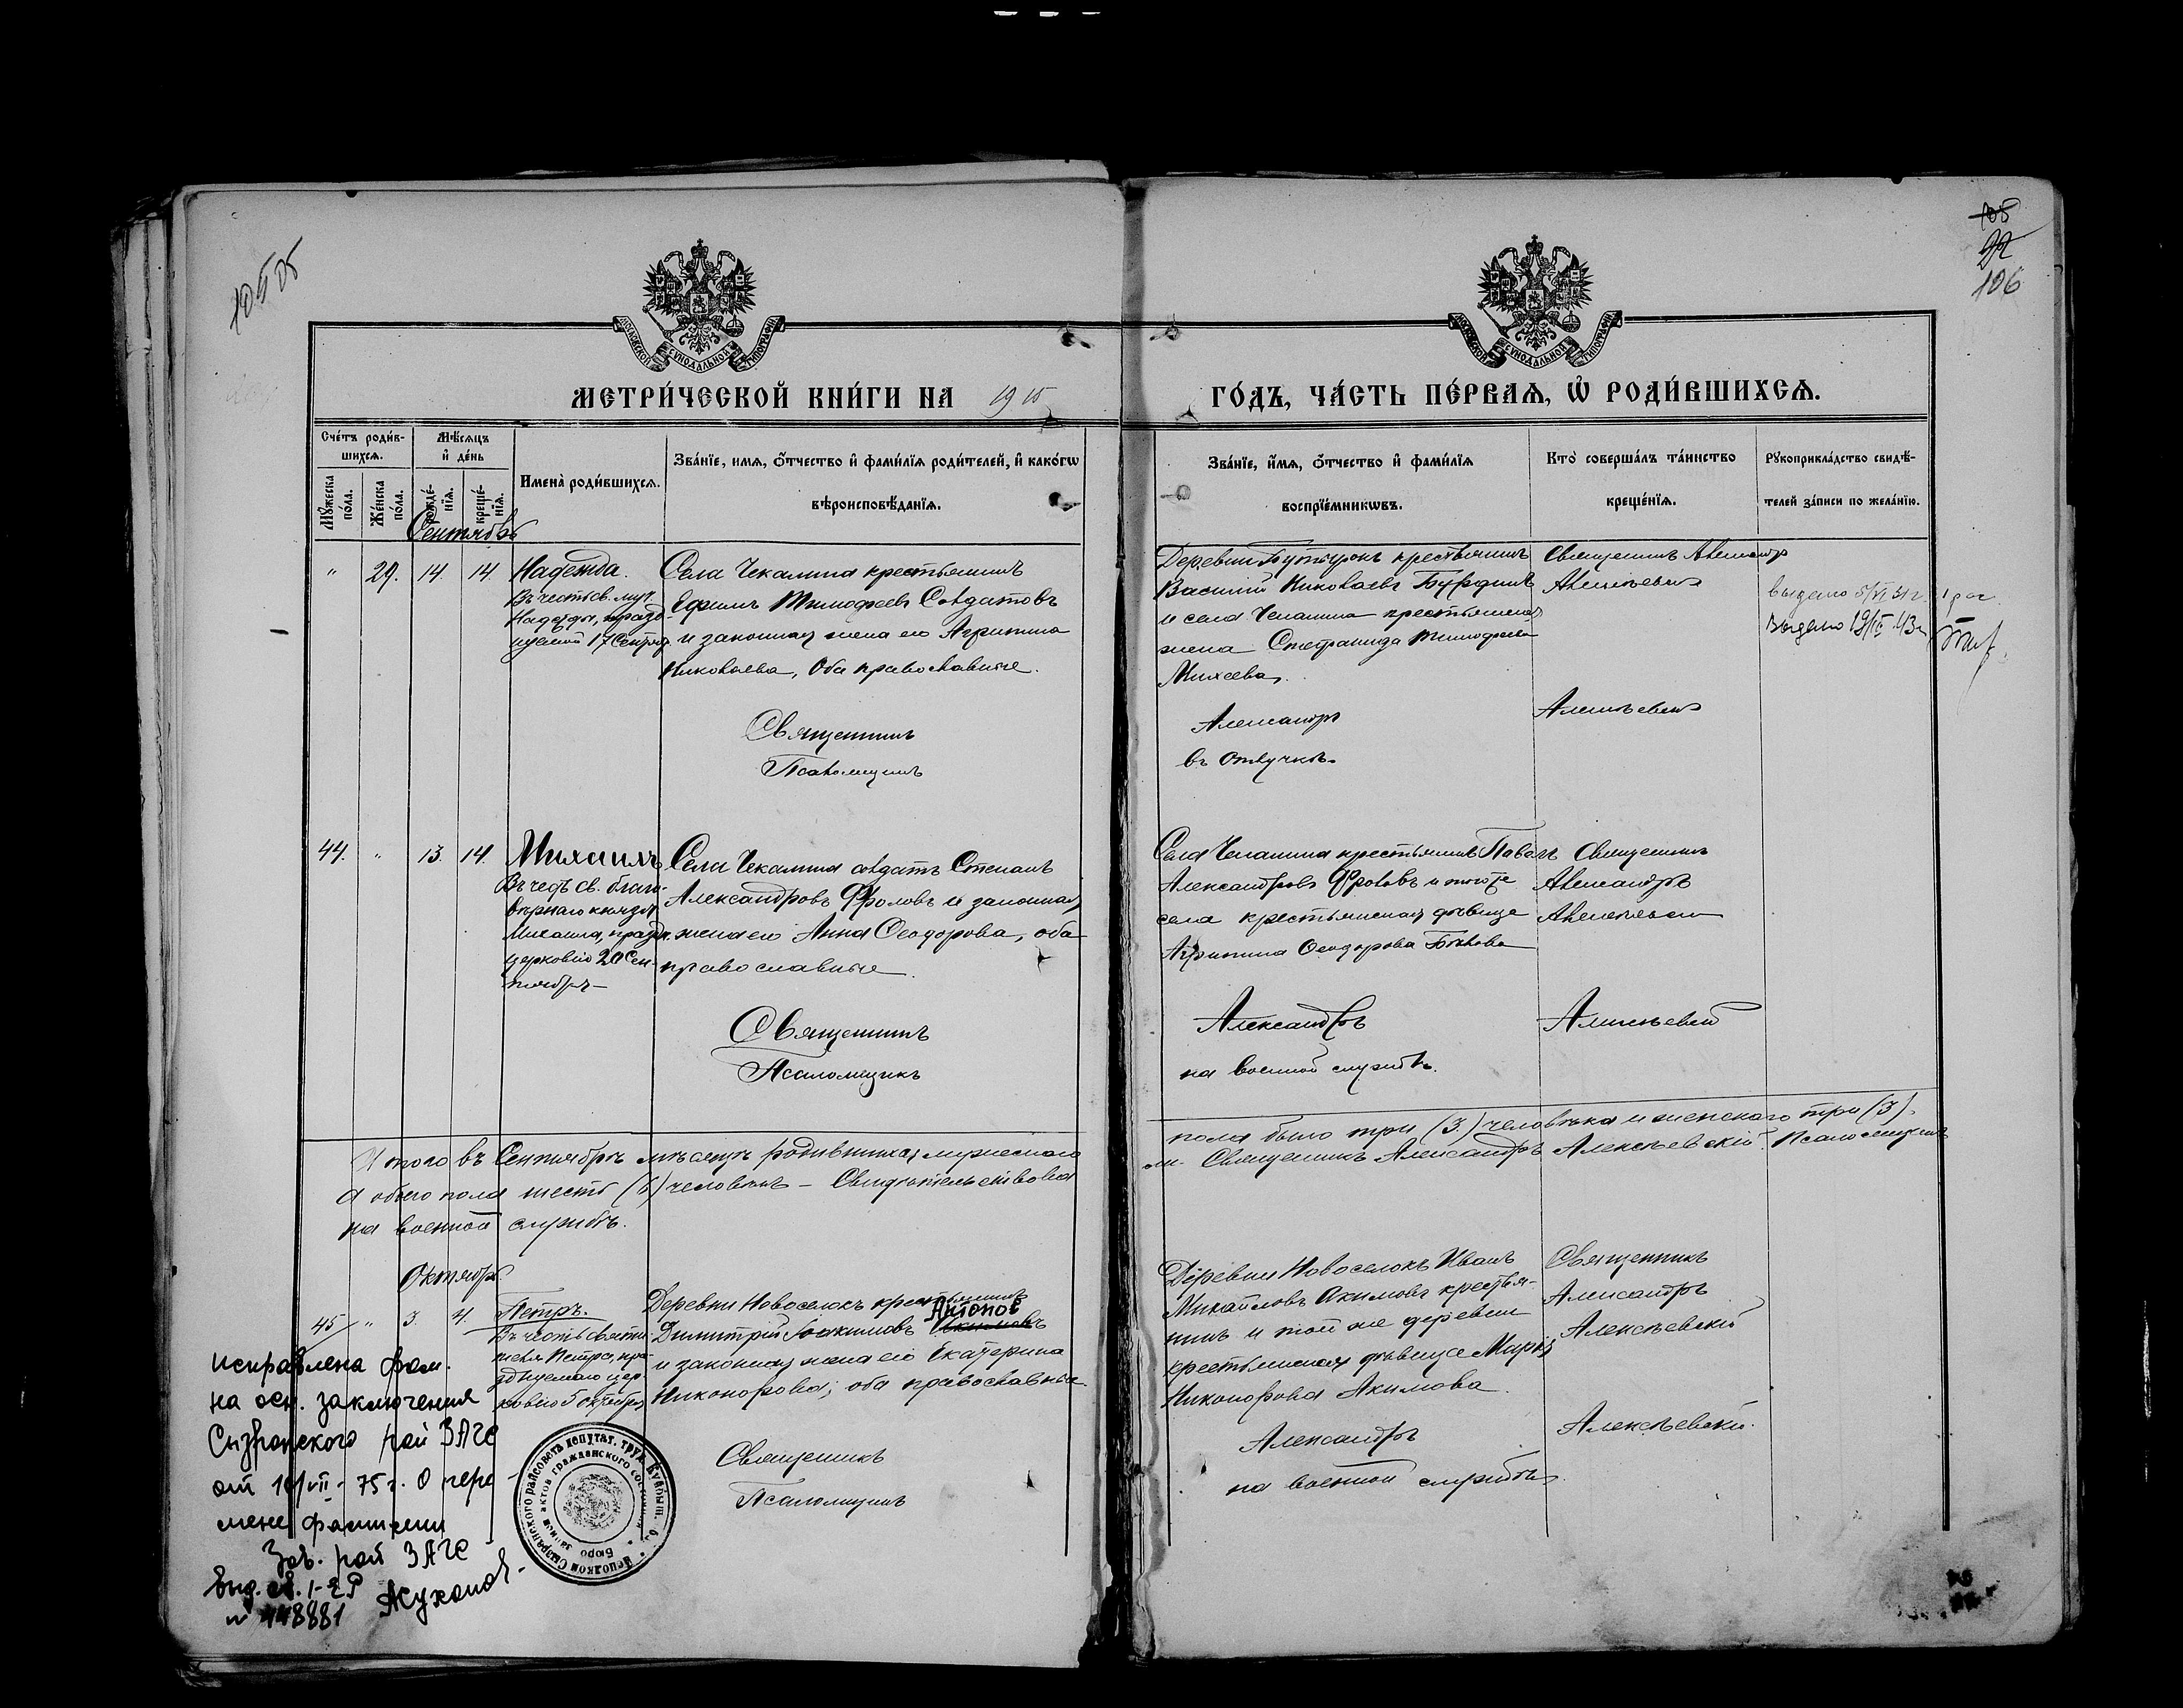 105
22
106
МОСКОВСКОЙ СУНОДАЛЬНОЙ ТИПОГРАФІИ
МОСКОВСКОЙ СУНОДАЛЬНОЙ ТИПОГРАФІИ
МЕТРИ́ЧЕСКОЙ КНИ́ГИ НА 1915
ГО́ДЪ, ЧА́СТЬ ПЕ́РВАѦ, Ѡ РОДИ́ВШИХСѦ.
Сче́тъ роди́в-
шихсѧ.
Мꙋ́жеска по́ла.
Же́нска по́ла.
Мѣ́сѧцъ
и҆ де́нь
рожде́-нїѧ.
креще́-нїѧ.
Имена̀ роди́вшихсѧ.
Зва́нїе, имѧ, о́тчество и҆ фами́лїѧ роди́телей, и҆ како́гѡ
вѣроисповѣ́данїѧ.
Зва́нїе, и́мѧ, о́тчество и҆ фами́лїѧ
воспрїе́мникѡвъ.
Кто̀ соверша́лъ та́инство
креще́нїѧ.
Рꙋкоприкла́дство свидѣ́-
телей за́писи по жела́нїю.
Сентябрь
" 29. 14. 14. Надежда.
Въ честь св. муч.
Надежды, празд-
нуемой 17 Сентяб.
Села Чекалина крестьянинъ
Ефимъ Тимофеевъ Солдатовъ
и законная жена его Агрипина
Николаева, Оба православные.
Священникъ
Псаломщикъ
Деревни Бутырокъ крестьянинъ
Василій Николаевъ Бурдинъ
и села Чекалина крестьянская
жена Стефанида Тимофеева
Михеева.
Александръ
въ отлучкѣ.
Священникъ Александръ
Алексѣевскій
Алексѣевскій
выдано 5/VI 31 г. 1 раз.
Выдано
44. " 13. 14. Михаилъ
Въ честь св. благо-
вѣрнаго князя
Михаила, празд.
церковію 20 Сен-
тября
Села Чекалина солдатъ Степанъ
Александровъ Фроловъ и законная
жена его Анна Ѳеодорова, оба
православные.
Священникъ
Псаломщикъ
Села Чекалина крестьянинъ Павелъ
Александровъ Фроловъ и того же
села крестьянская дѣвица
Агрипина Ѳеодорова
Александръ
на военной службѣ.
Священникъ
Александръ
Алексѣевскій
Алексѣевскій
Итого въ Сентябрѣ мѣсяцѣ родившихся мужескаго
пола было три (3.) человѣка и женскаго три (3).
а обоего пола шесть (6) человѣкъ – Свидѣтельствова
ли. Священникъ Александръ Алексѣевскій. Псаломщикъ
на военной службѣ.
Октябрь.
45 " 3. 4. Петръ.
Въ честь святи-
теля Петра, пра-
зднуемаго цер-
ковію 5 октября
Деревни Новоселокъ крестьянинъ
Антонов
Димитрій Іоакимовъ Акимовъ
и законная жена его Екатерина
Никонорова; оба православные.
Священникъ
Псаломщикъ
Деревни Новоселокъ Иванъ
Михайловъ Акимовъ крестья-
нинъ и той же деревни
крестьянская дѣвица Марія
Никонорова Акимова.
Александръ
на военной службѣ.
Священникъ
Александръ
Алексѣевскій
Алексѣевскій.
исправлена фам.
на осн. заключения
Сызранского рай ЗАГС
от 10/VII - 75 г. О пере-
мене фамилии
Зав. рай ЗАГС
выд. св. I-ЕР
№ 448881
Исполком Сызранского райсовета депутат. труд. Куйбыш. обл.
Бюро записи актов гражданского состояния